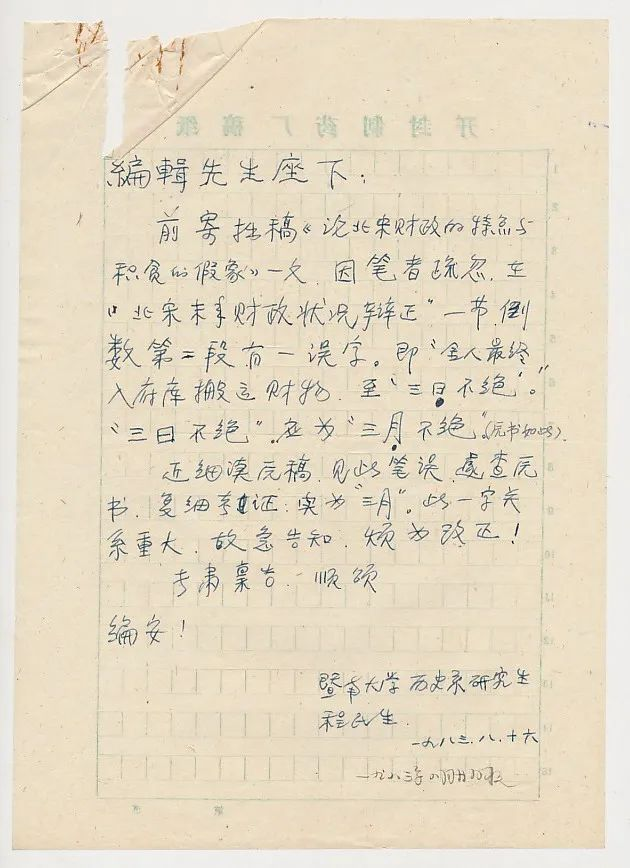 开封制药厂稿纸
编辑先生座下：
前寄拙稿《论北宋财政的特点与
积贫的假象》一文，因笔者疏忽，在
“北宋末年财政状况辩正”一节，倒
数第二段有一误字。即“金人最终
入府库搬运财物，至‘三日不绝’。”
“三日不绝”应为“三月不绝”（原书如此）。
近细读原稿，见此笔误，遂查原
书，复细考证，实为“三月”。此一字关
系重大，故急告知，烦为改正！
专肃禀告，顺颂
编安！
暨南大学历史系研究生
程民生
一九八三.八.十六
一九八三年八月